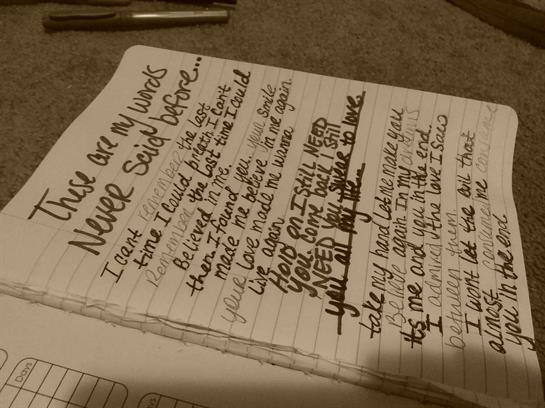 These are my words
Never Said before...
I cant remember the last
time I could breath I can't
Remember the last time I could
Believed in me.
then I found you.. your smile
made me believe in me again.
your love made me wanna
Live again.
Hold on I still NEED
you Come back I still
NEED you I swear to love
you all my life...
take my hand Let me make you
Believe again In my dreams
Its me and you in the end.
I admired the love I saw
between them
I wont let the evil that
almost me consume
you in the end
Days